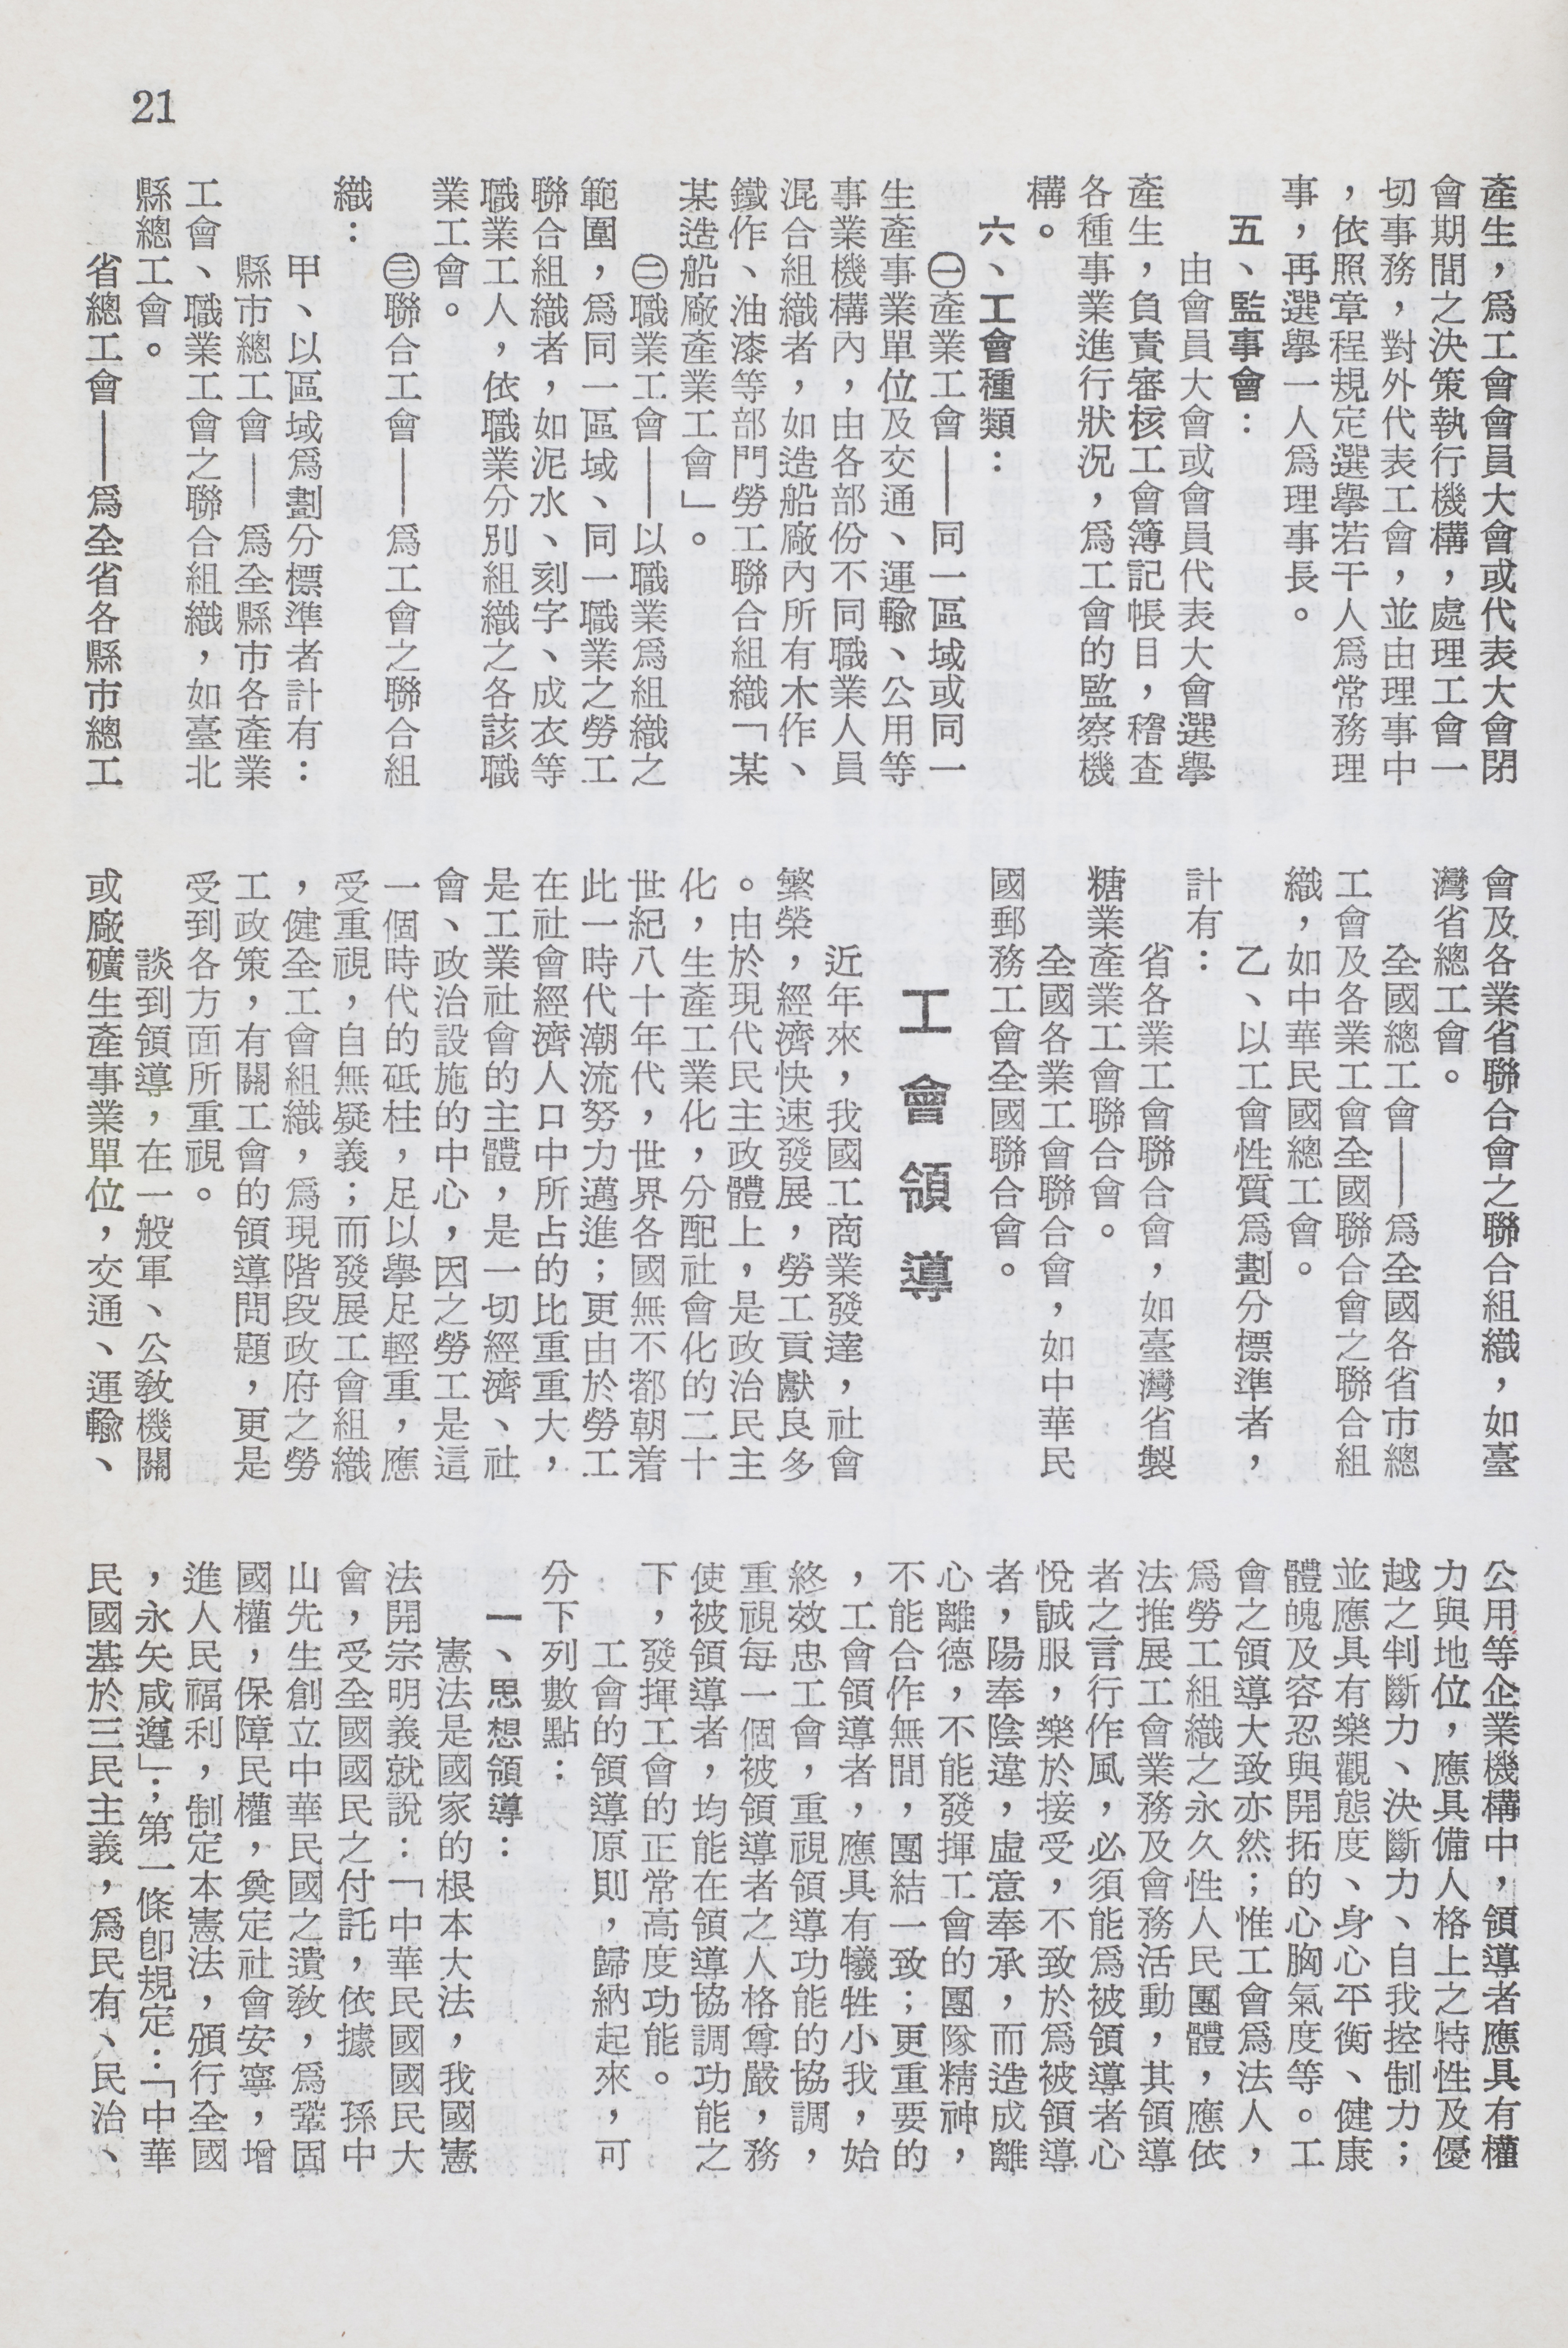 21
產生，爲工會會員大會或代表大會閉
會期間之決策執行機構，處理工會一
切事務，對外代表工會，並由理事中
，依照章程規定選舉若干人爲常務理
事，再選舉一人爲理事長。
五、監事會：
由會員大會或會員代表大會選舉
產生，負責審核工會簿記帳目，稽查
各種事業進行狀況，爲工會的監察機
構。
六、工會種類：
㊀產業工會——同一區域或同一
生產事業單位及交通、運輸、公用等
事業機構內，由各部份不同職業人員
混合組織者，如造船廠內所有木作、
鐵作、油漆等部門勞工聯合組織「某
某造船廠產業工會」。
㊁職業工會——以職業爲組織之
範圍，爲同一區域、同一職業之勞工
聯合組織者，如泥水、刻字、成衣等
職業工人，依職業分別組織之各該職
業工會。
㊂聯合工會——爲工會之聯合組
織：
甲、以區域爲劃分標準者計有：
縣市總工會——爲全縣市各產業
工會、職業工會之聯合組織，如臺北
縣總工會。
省總工會——爲全省各縣市總工
會及各業省聯合會之聯合組織，如臺
灣省總工會。
全國總工會——爲全國各省市總
工會及各業工會全國聯合會之聯合組
織，如中華民國總工會。
乙、以工會性質爲劃分標準者，
計有：
省各業工會聯合會，如臺灣省製
糖業產業工會聯合會。
全國各業工會聯合會，如中華民
國郵務工會全國聯合會。
工會領導
近年來，我國工商業發達，社會
繁榮，經濟快速發展，勞工貢獻良多
。由於現代民主政體上，是政治民主
化，生產工業化，分配社會化的二十
世紀八十年代，世界各國無不都朝着
此一時代潮流努力邁進；更由於勞工
在社會經濟人口中所占的比重重大，
是工業社會的主體，是一切經濟、社
會、政治設施的中心，因之勞工是這
一個時代的砥柱，足以舉足輕重，應
受重視，自無疑義；而發展工會組織
，健全工會組織，爲現階段政府之勞
工政策，有關工會的領導問題，更是
受到各方面所重視。
談到領導，在一般軍、公教機關
或廠礦生產事業單位，交通、運輸、
公用等企業機構中，領導者應具有權
力與地位，應具備人格上之特性及優
越之判斷力、決斷力、自我控制力；
並應具有樂觀態度、身心平衡、健康
體魄及容忍與開拓的心胸氣度等。工
會之領導大致亦然；惟工會爲法人，
爲勞工組織之永久性人民團體，應依
法推展工會業務及會務活動，其領導
者之言行作風，必須能爲被領導者心
悅誠服，樂於接受，不致於爲被領導
者，陽奉陰違，虛意奉承，而造成離
心離德，不能發揮工會的團隊精神，
不能合作無間，團結一致；更重要的
，工會領導者，應具有犧牲小我，始
終效忠工會，重視領導功能的協調，
重視每一個被領導者之人格尊嚴，務
使被領導者，均能在領導協調功能之
下，發揮工會的正常高度功能。
工會的領導原則，歸納起來，可
分下列數點：
一、思想領導：
憲法是國家的根本大法，我國憲
法開宗明義就說：「中華民國國民大
會，受全國國民之付託，依據　孫中
山先生創立中華民國之遺敎，爲鞏固
國權，保障民權，奠定社會安寧，增
進人民福利，制定本憲法，頒行全國
，永矢咸遵」；第一條卽規定：「中華
民國基於三民主義，爲民有、民治、